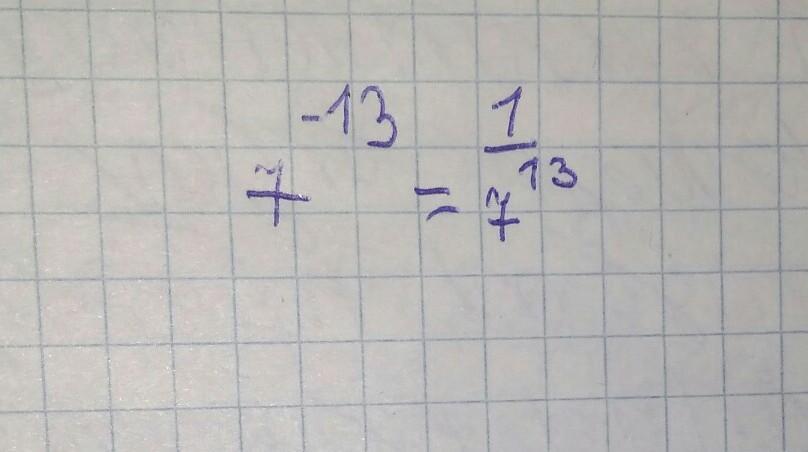 7⁻¹³ = 1/7¹³